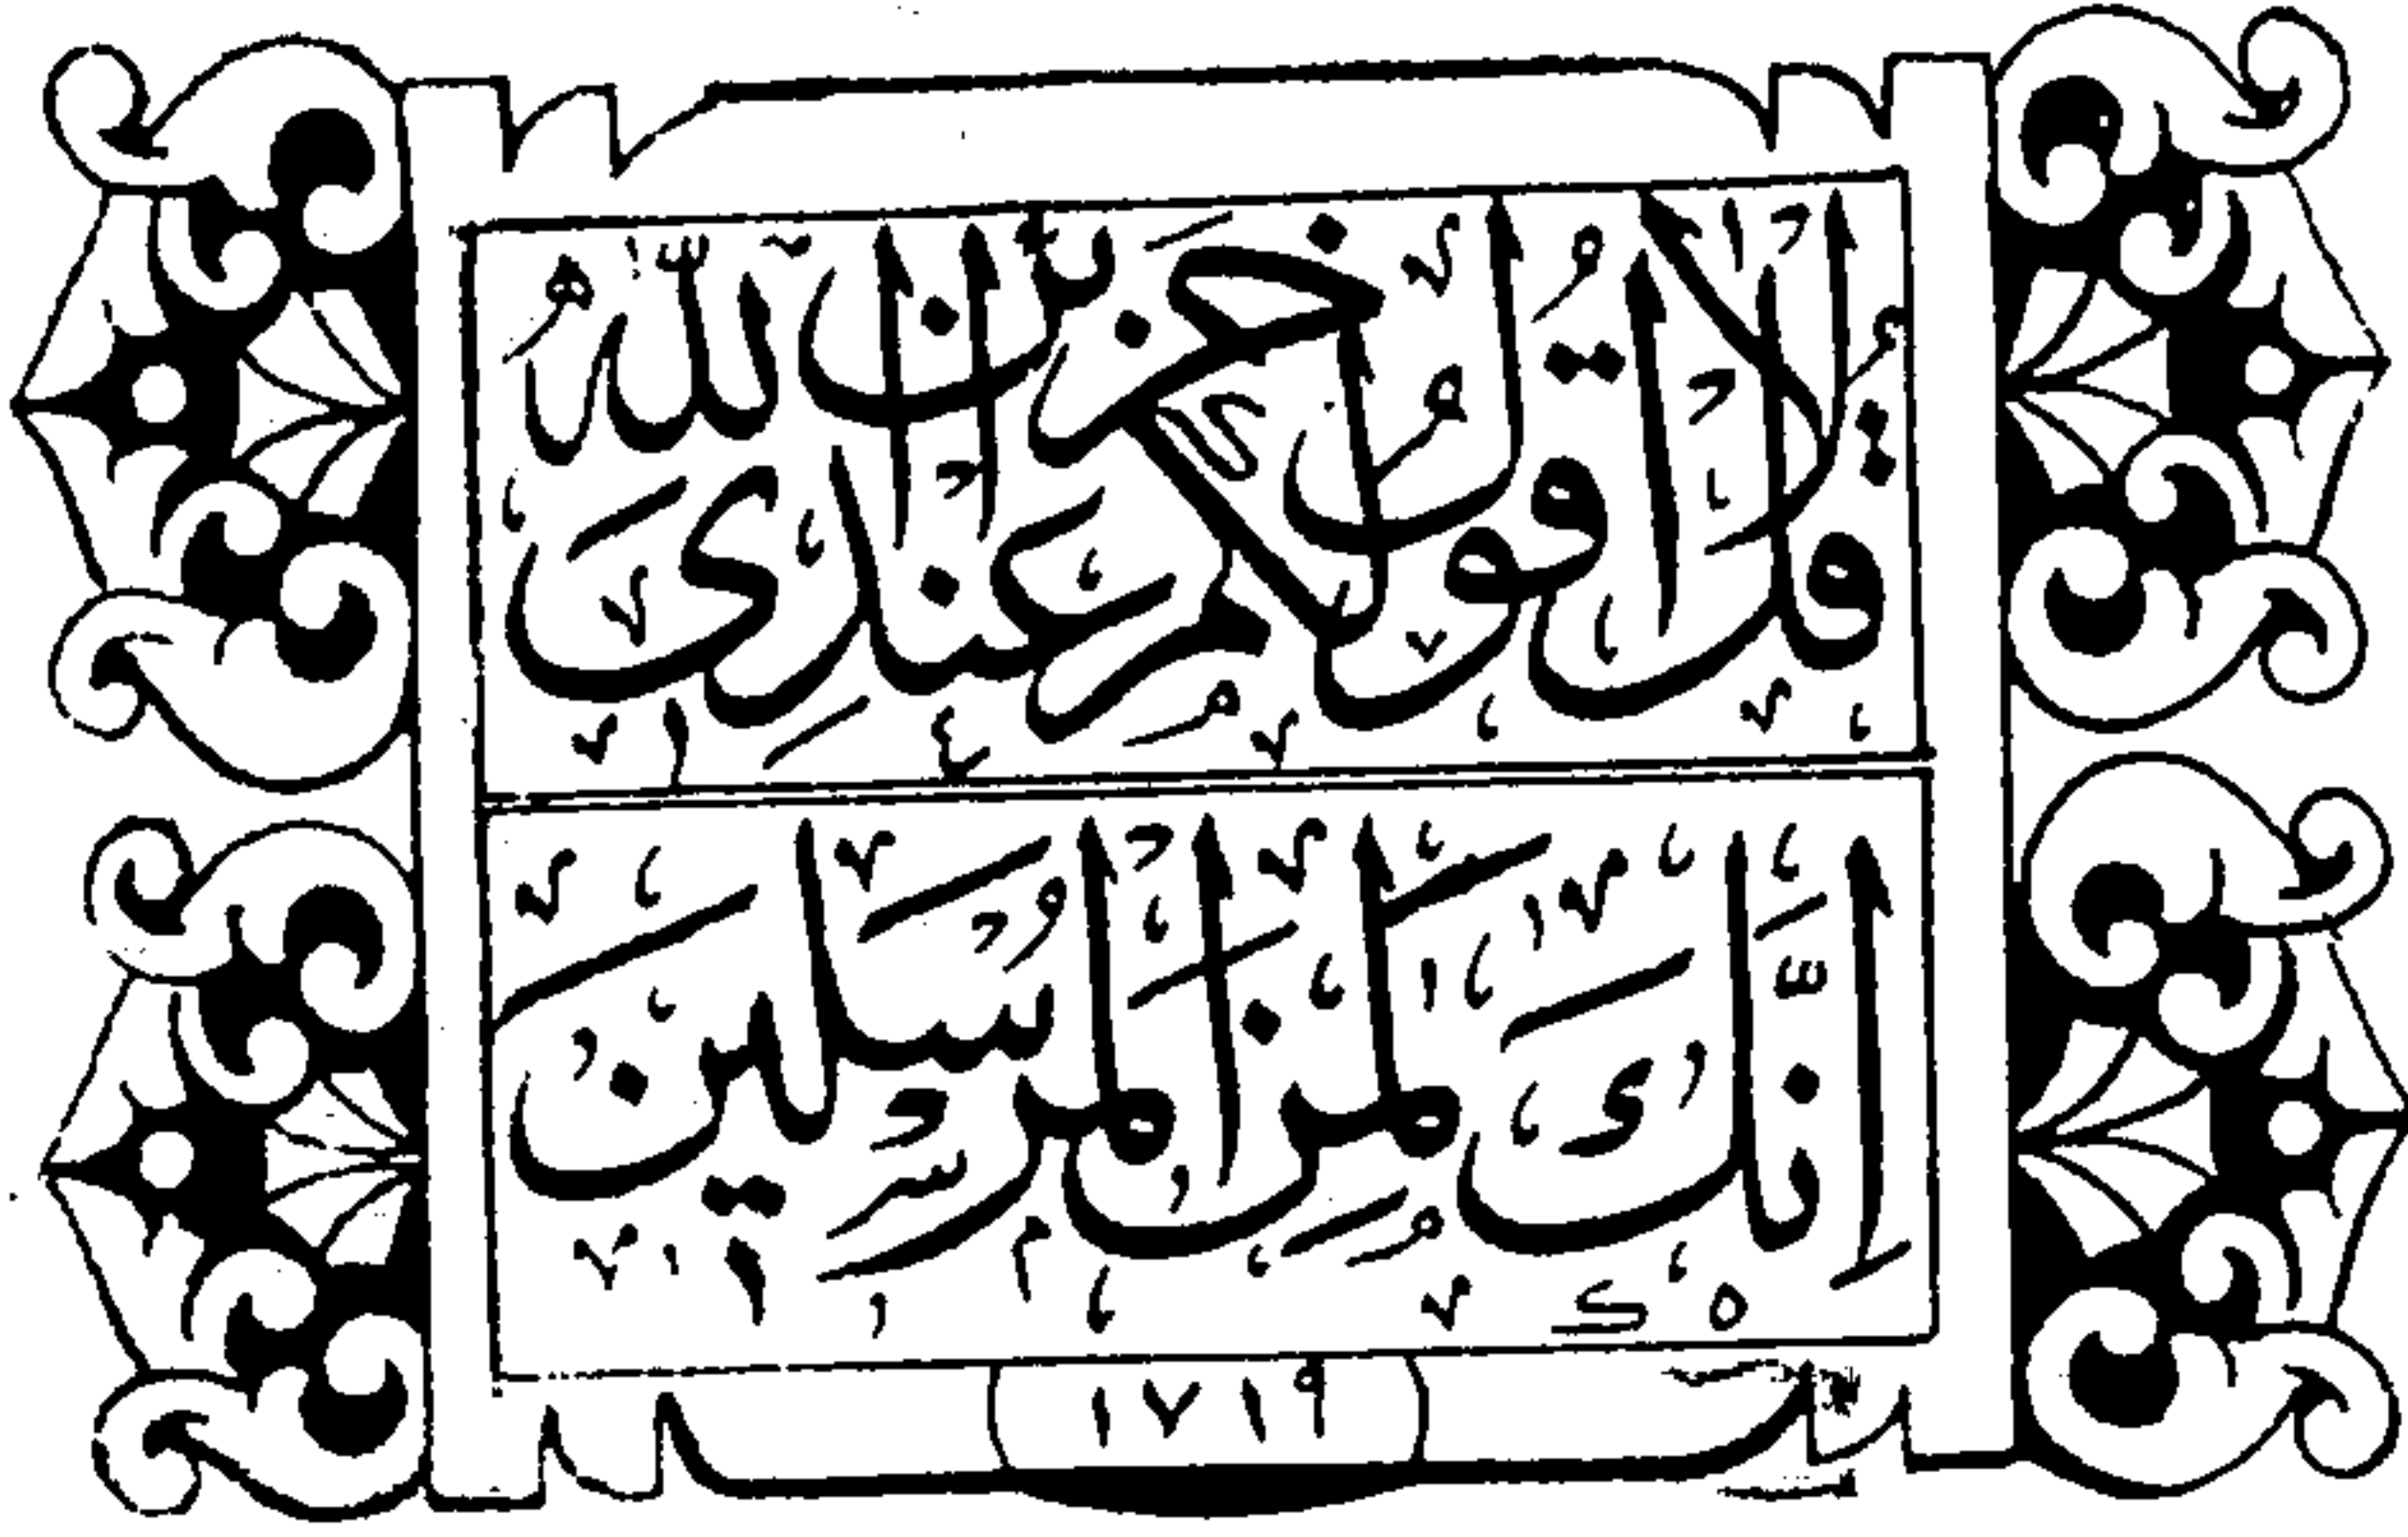 قل لا اقول لكم عندى خزائن الله
انك لمن المرسلين
١٧١٩